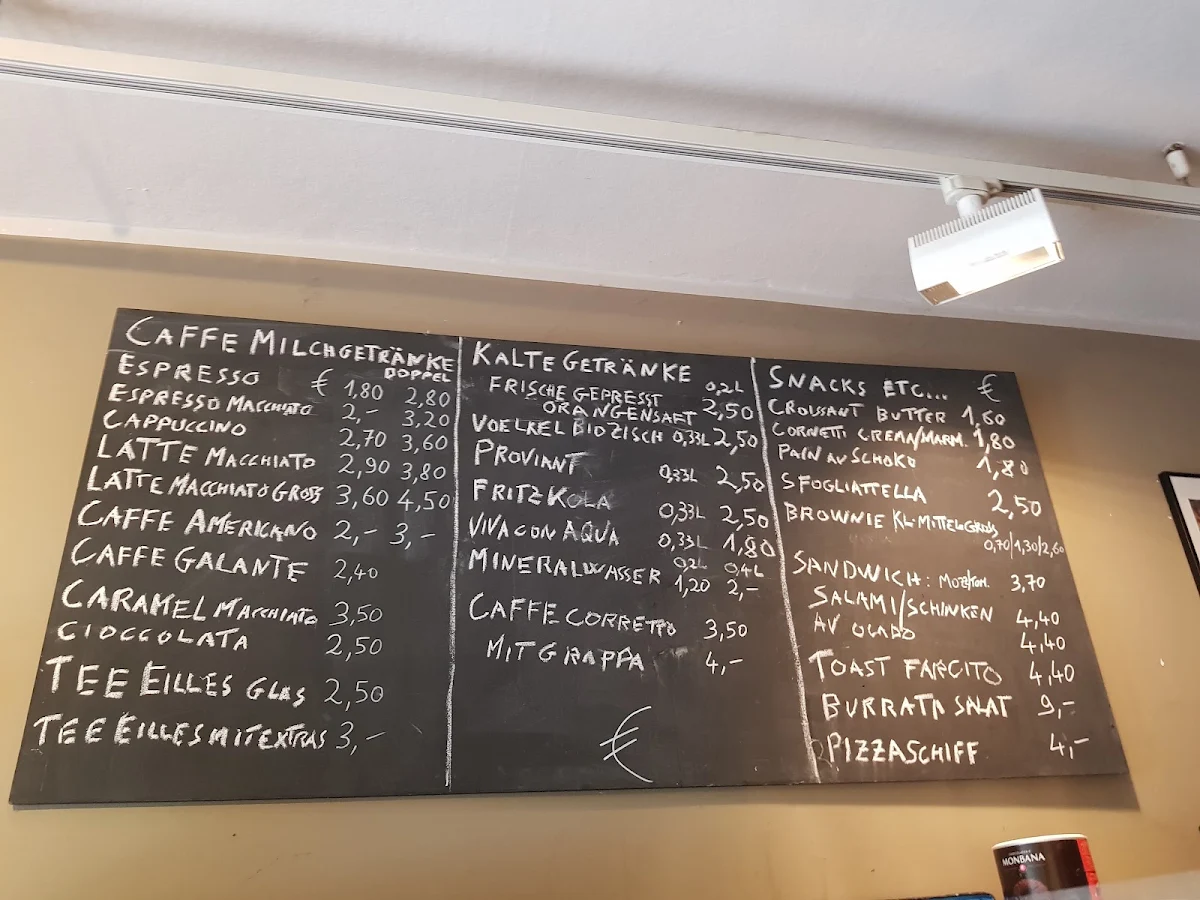 CAFFE MILCHGETRÄNKE
DOPPEL
ESPRESSO € 1,80 2,80
ESPRESSO MACCHIATO 2,- 3,20
CAPPUCCINO 2,70 3,60
LATTE MACCHIATO 2,90 3,80
LATTE MACCHIATO GROSS 3,60 4,50
CAFFE AMERICANO 2,- 3,-
CAFFE GALANTE 2,40
CARAMEL MACCHIATO 3,50
CIOCCOLATA 2,50
TEE EILLES GLAS 2,50
TEE EILLES MIT EXTRAS 3,-
KALTE GETRÄNKE
FRISCHE GEPRESST 0,2L
ORANGENSAFT 2,50
VOELKEL BIOZISCH 0,33L 2,50
PROVIANT 0,33L 2,50
FRITZ KOLA 0,33L 2,50
VIVA CON AQUA 0,33L 1,80
MINERALWASSER 0,2L 0,4L
1,20 2,-
CAFFE CORRETTO 3,50
MIT GRAPPA 4,-
€
SNACKS ETC... €
CROISSANT BUTTER 1,60
CORNETTI CREMA/MARM. 1,80
PAIN AU SCHOKO 1,80
SFOGLIATTELLA 2,50
BROWNIE KL-MITTEL-GROSS
0,70/1,30/2,60
SANDWICH: MOZ/TOM. 3,70
SALAMI/SCHINKEN 4,40
AVOCADO 4,40
TOAST FARCITO 4,40
BURRATA SALAT 9,-
PIZZASCHIFF 4,-
MONBANA